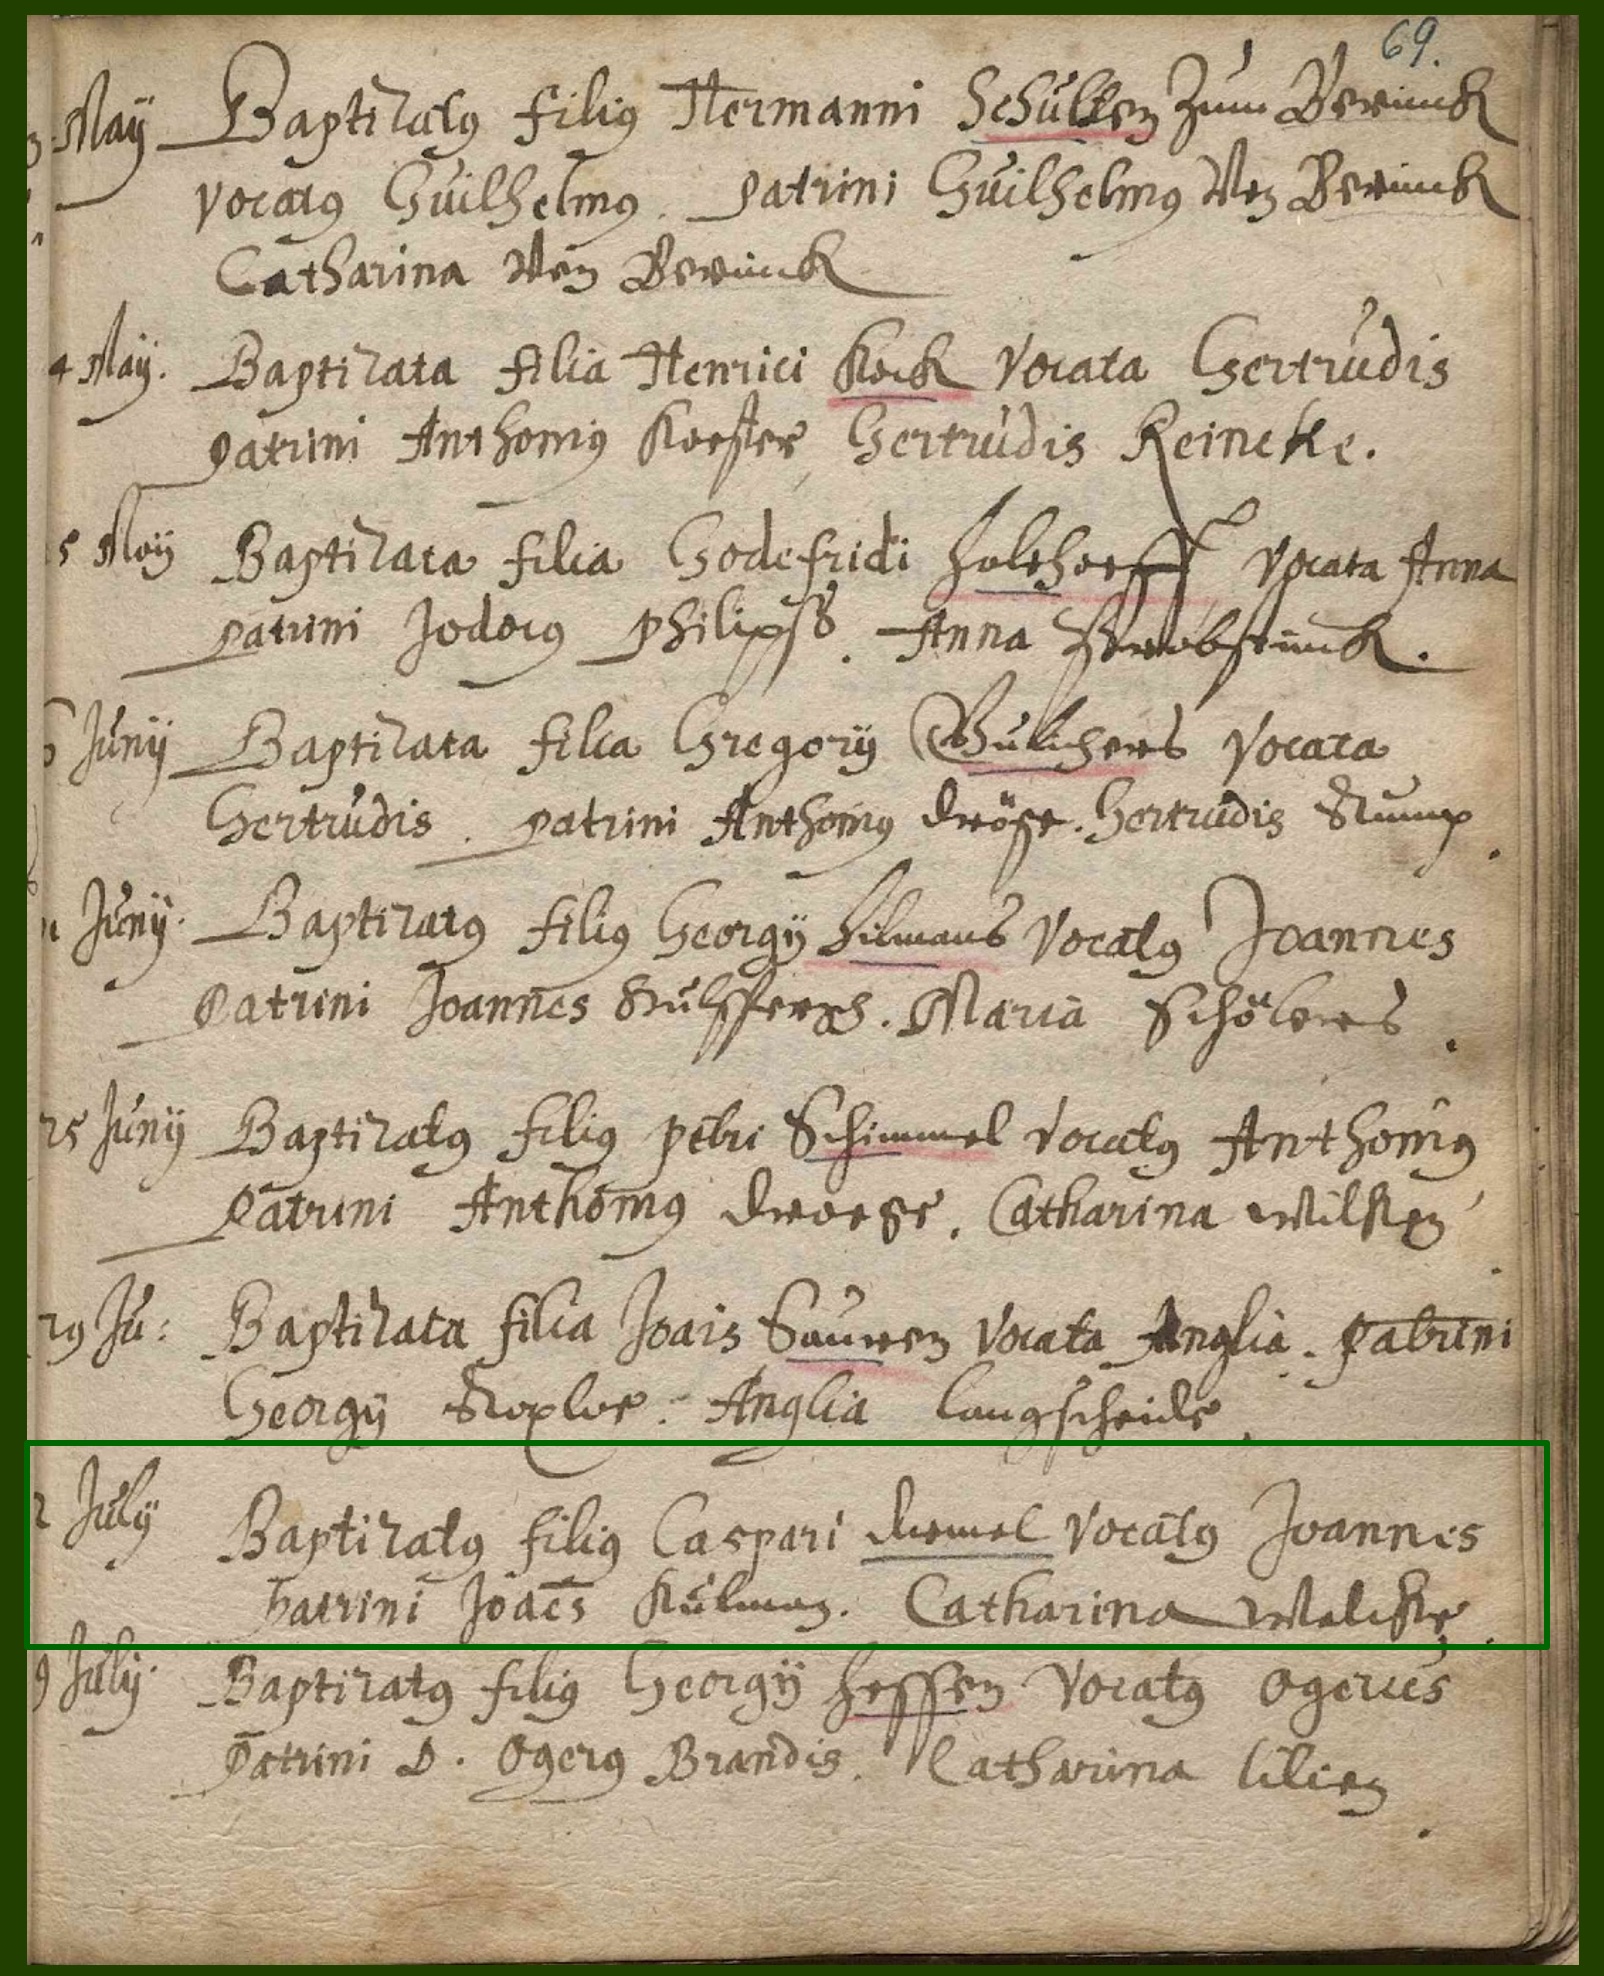 69.
May Baptizatus filius Hermanni Schulten zum Berinck
vocatus Guilhelmus. patrini Guilhelmus Von Berinck
Catharina Von Berinck
4 May. Baptizata filia Henrici Kock vocata Gertrudis
patrini Anthonius Koester Gertrudis Reincke.
5 May Baptizata filia Godefridi Holthoeff vocata Anna
patrini Jodocus Philipss. Anna
Junij Baptizata filia Gregorij vocata
Gertrudis. patrini Anthonius Dröge. Gertrudis Stump.
Junij. Baptizatus filius Georgij Hilmans vocatus Joannes
Patrini Joannes. Maria Schölers.
25 Junij Baptizatus filius petri Schimmel vocatus Anthonius
patrini Anthonius Droege. Catharina Wilken
29 Ju: Baptizata filia Jois Sauren vocata Anglia. patrini
Georgij. Anglia Langscheide.
2 July Baptizatus filius Caspari Diemel vocatus Joannes
patrini Joaes Külman. Catharina
9 July. Baptizatus filius Georgij Hessen vocatus Ogerus
patrini D. Ogerus Brandis. Catharina Lilien.